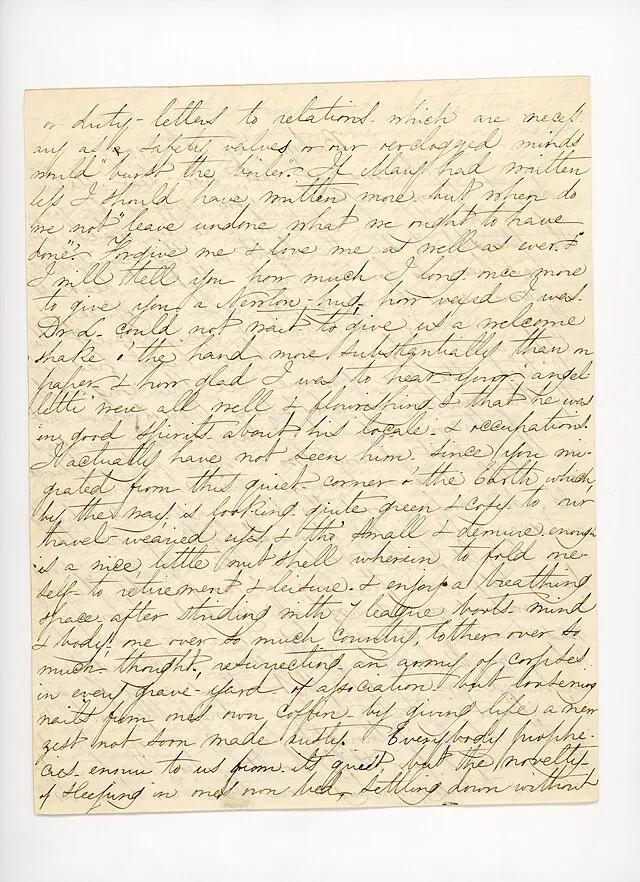 or duty-letters to relations which are necess
ary as a safety valves or our overclogged minds
would "burst the boiler". If Mary had written
less I should have written more but when do
we not "leave undone what we ought to have
done". Forgive me & love me as well as ever. &
I will tell you how much I long once more
to give you a Newton-hug, how vexed I was
Dr L. could not wait to give us a welcome
shake o' the hand more substantially than on
paper & how glad I was to hear your angel
were all well & flourishing & that he was
in good spirits about his locale & occupations.
I actually have not seen him since you mi-
grated from this quiet corner o' the Earth which
by the way is looking quite green & cosy to our
travel-wearied eyes & tho' small & demure enough
is a nice little nutshell wherein to fold one-
self to retirement & leisure & enjoy a breathing
space after striding with 7 league boots mind
& body, one over so much country, tother over so
much thought, resurrecting an army of corpses
in every grave-yard of association but loosening
nails from ones own coffin by giving life a new
zest not soon made rusty. Everybody prophe-
cies ennui to us from its quiet but the novelty
of sleeping in ones own bed, settling down without